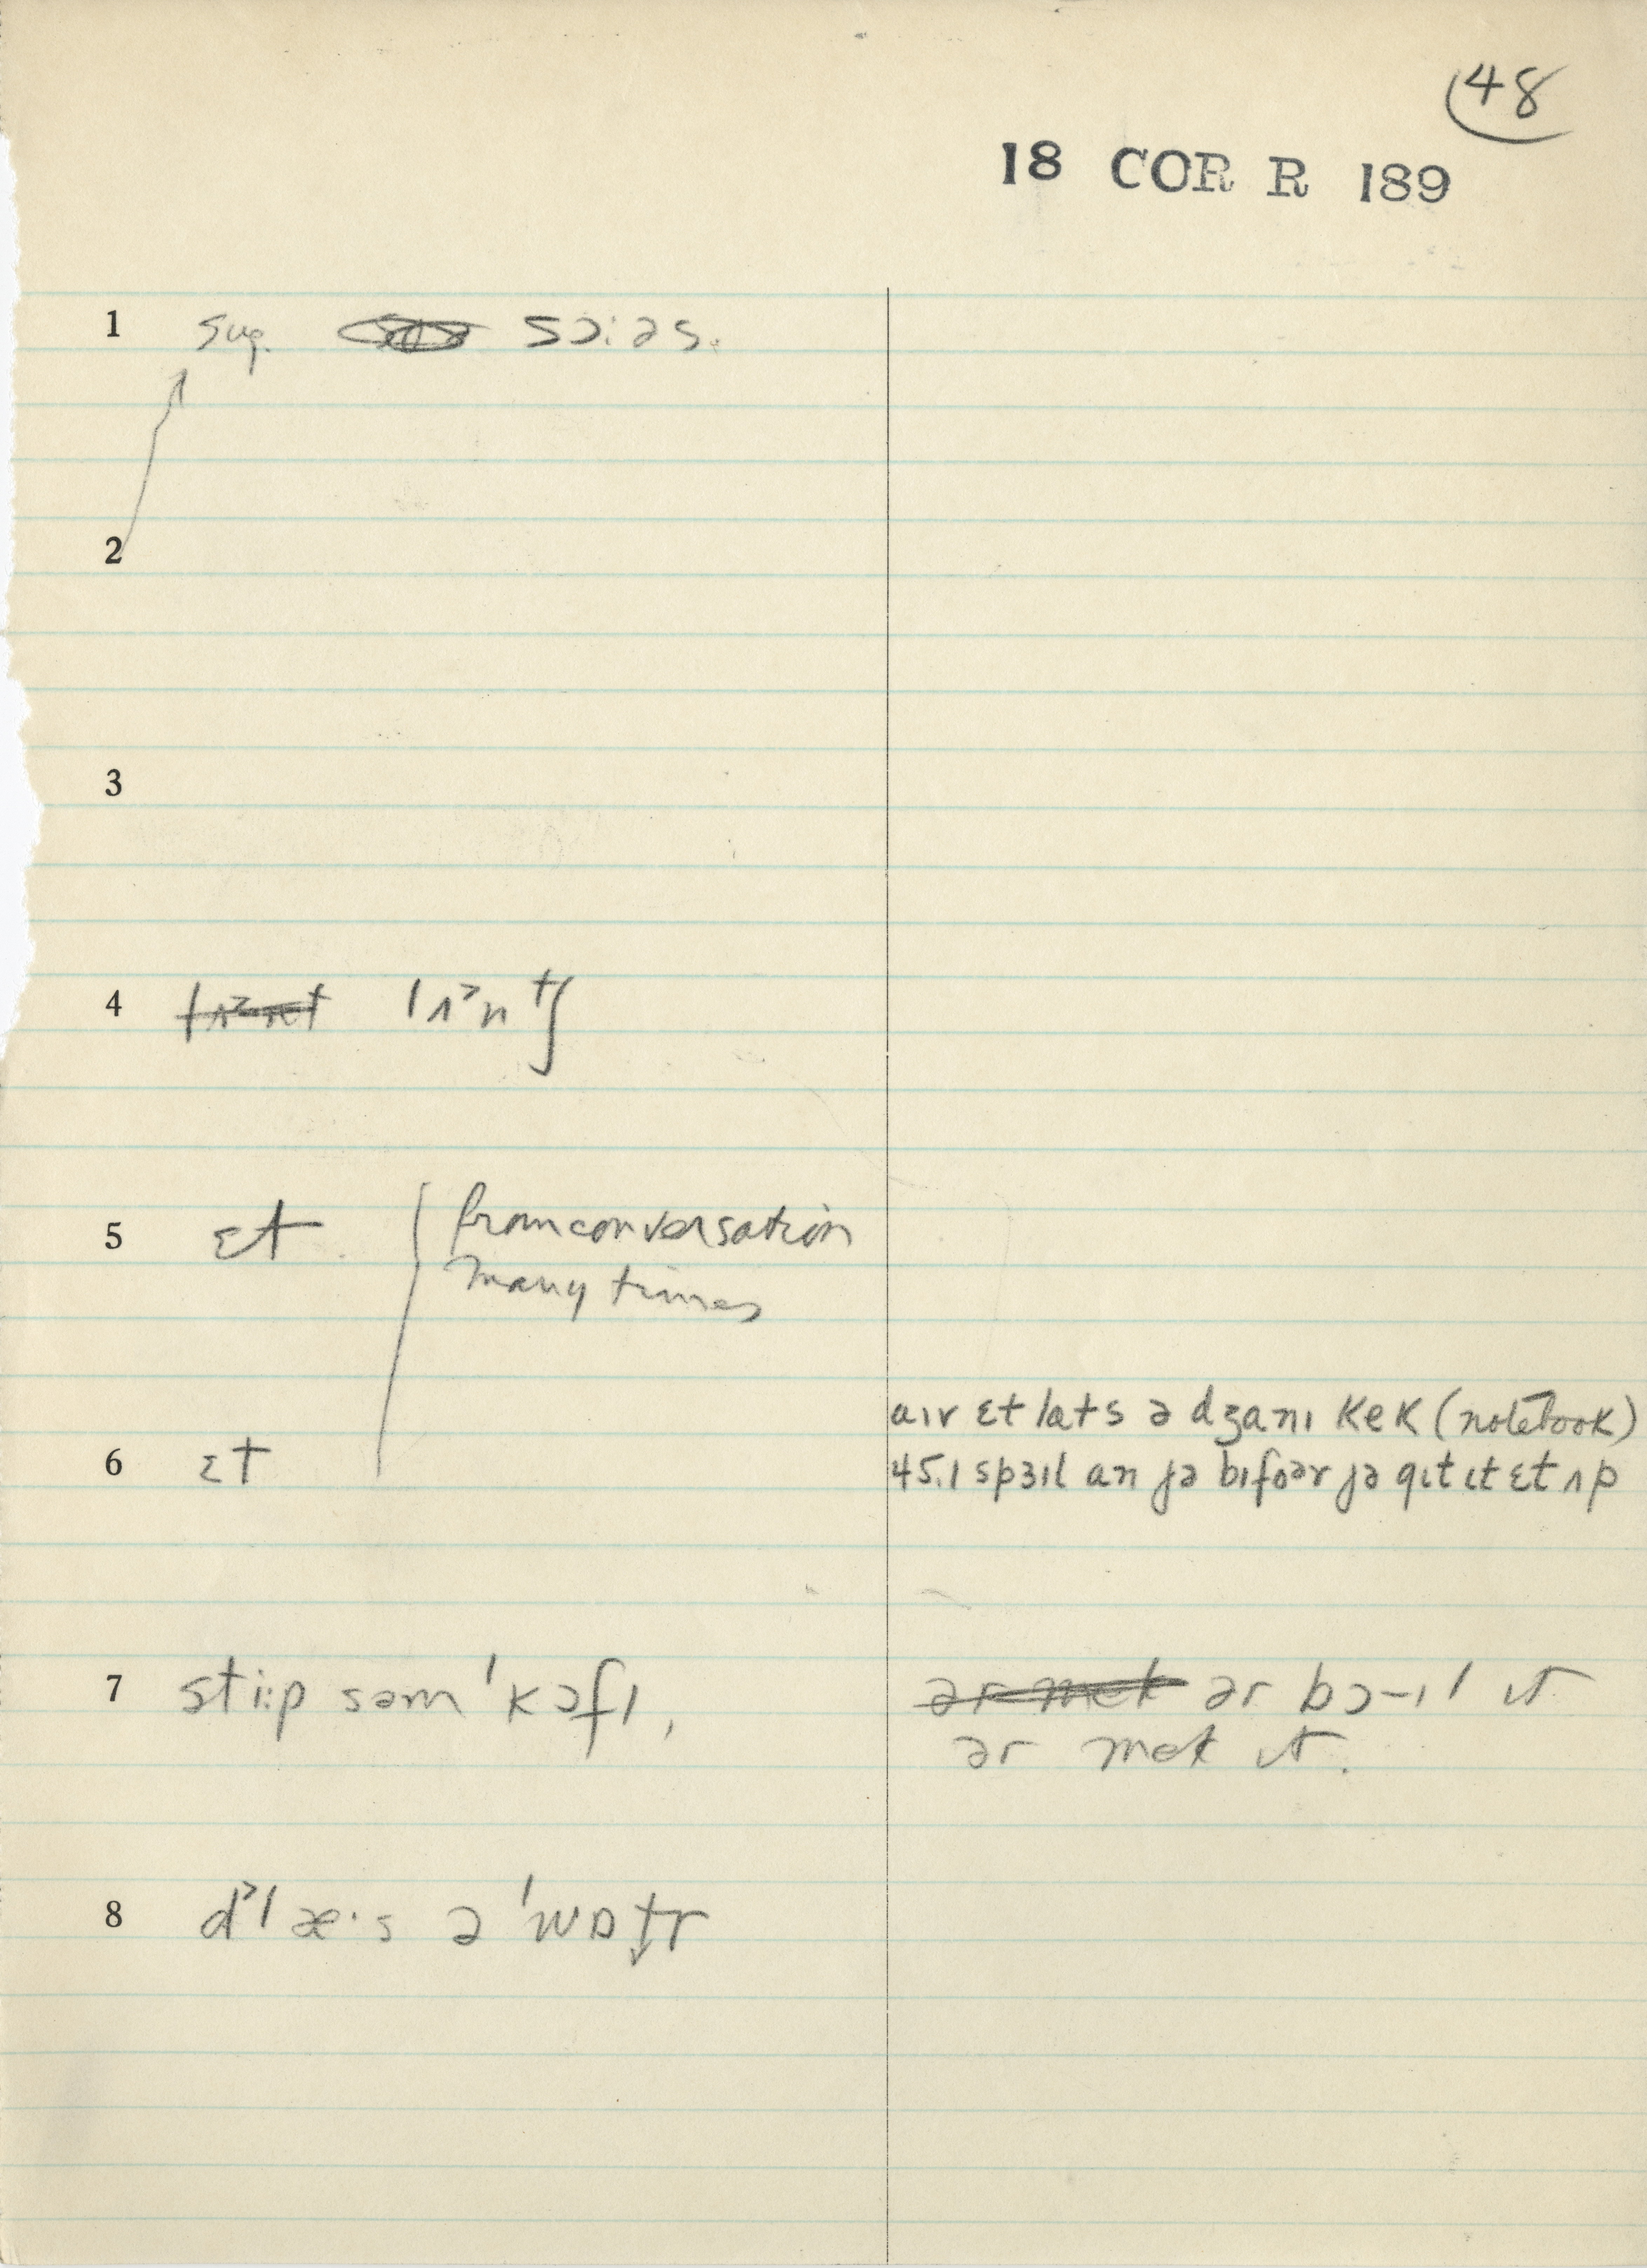 48
18 COR R 189
1 sug. sɔ:əs.
2
3
4 lʌ˃nt lʌ˃ntʃ
5 ɛt from conversation
many times
aɪv ɛt lats ə dʒanɪ kek (notebook)
6 ɛt 45.1 spɜɪl an jə bɪfoər jə gɪt ɪt ɛt ʌp
7 sti:p səm 'kɔfɪ, ər mek ər bɔ-ɪl ɪt
ər mek ɪt.
8 d˃læ·s ə 'wɒt̬r